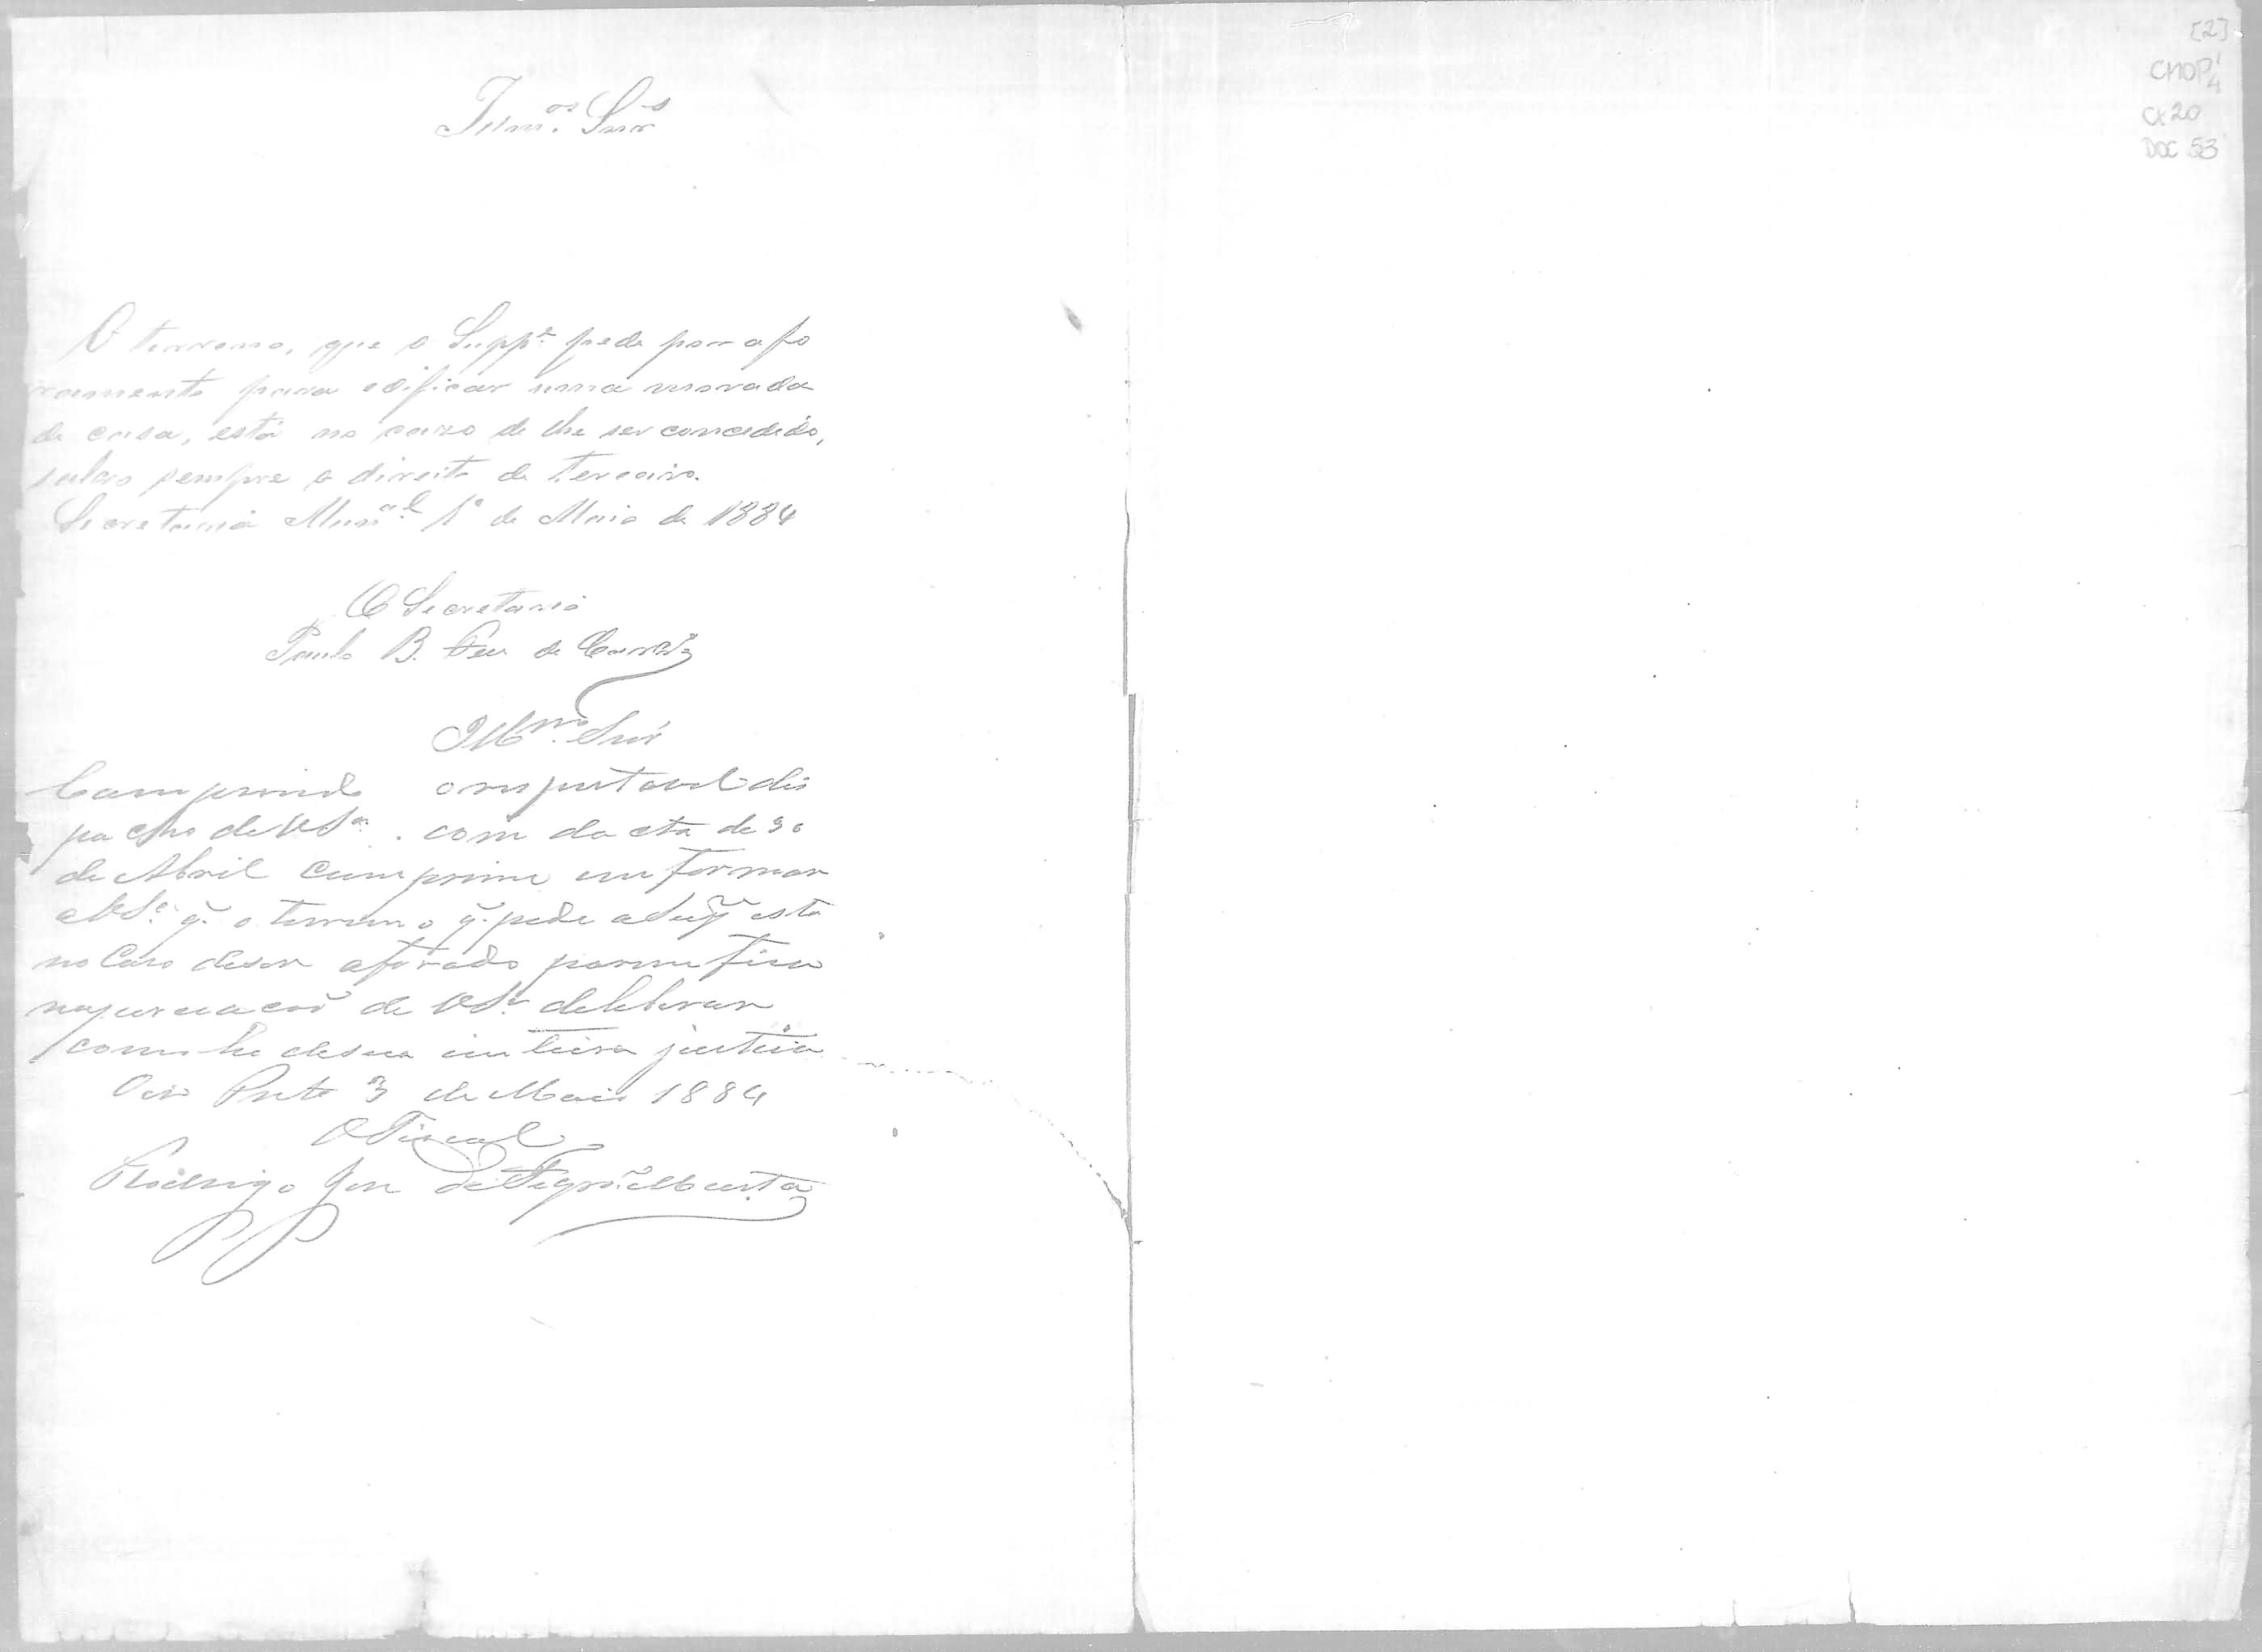 [2]
CMOP 1/4
CX 20
DOC 53
Illm.os Snrs
O terreno, que o Supp.e pede por afo
ramento para edificar uma morada
de casa, está no cazo de lhe ser concedido,
salvo sempre o direito de terceiro.
Secretaria Mun.al 1º de Maio de 1884
O Secretario
Paulo B. de
Illmº Snr
Comprindo orespeitavel dis
pacho de VSª. com dacta de 30
de Abril cumprime enformar
aVSª. q̃. o terreno q̃. pede aSupp está
no Caso deser aforado porem fica
de VSª. deleberar
como he desua inteira justiça
Oiro Preto 3 de Maio 1884
O Fiscal
Rodrigo José de Figrdº Murta